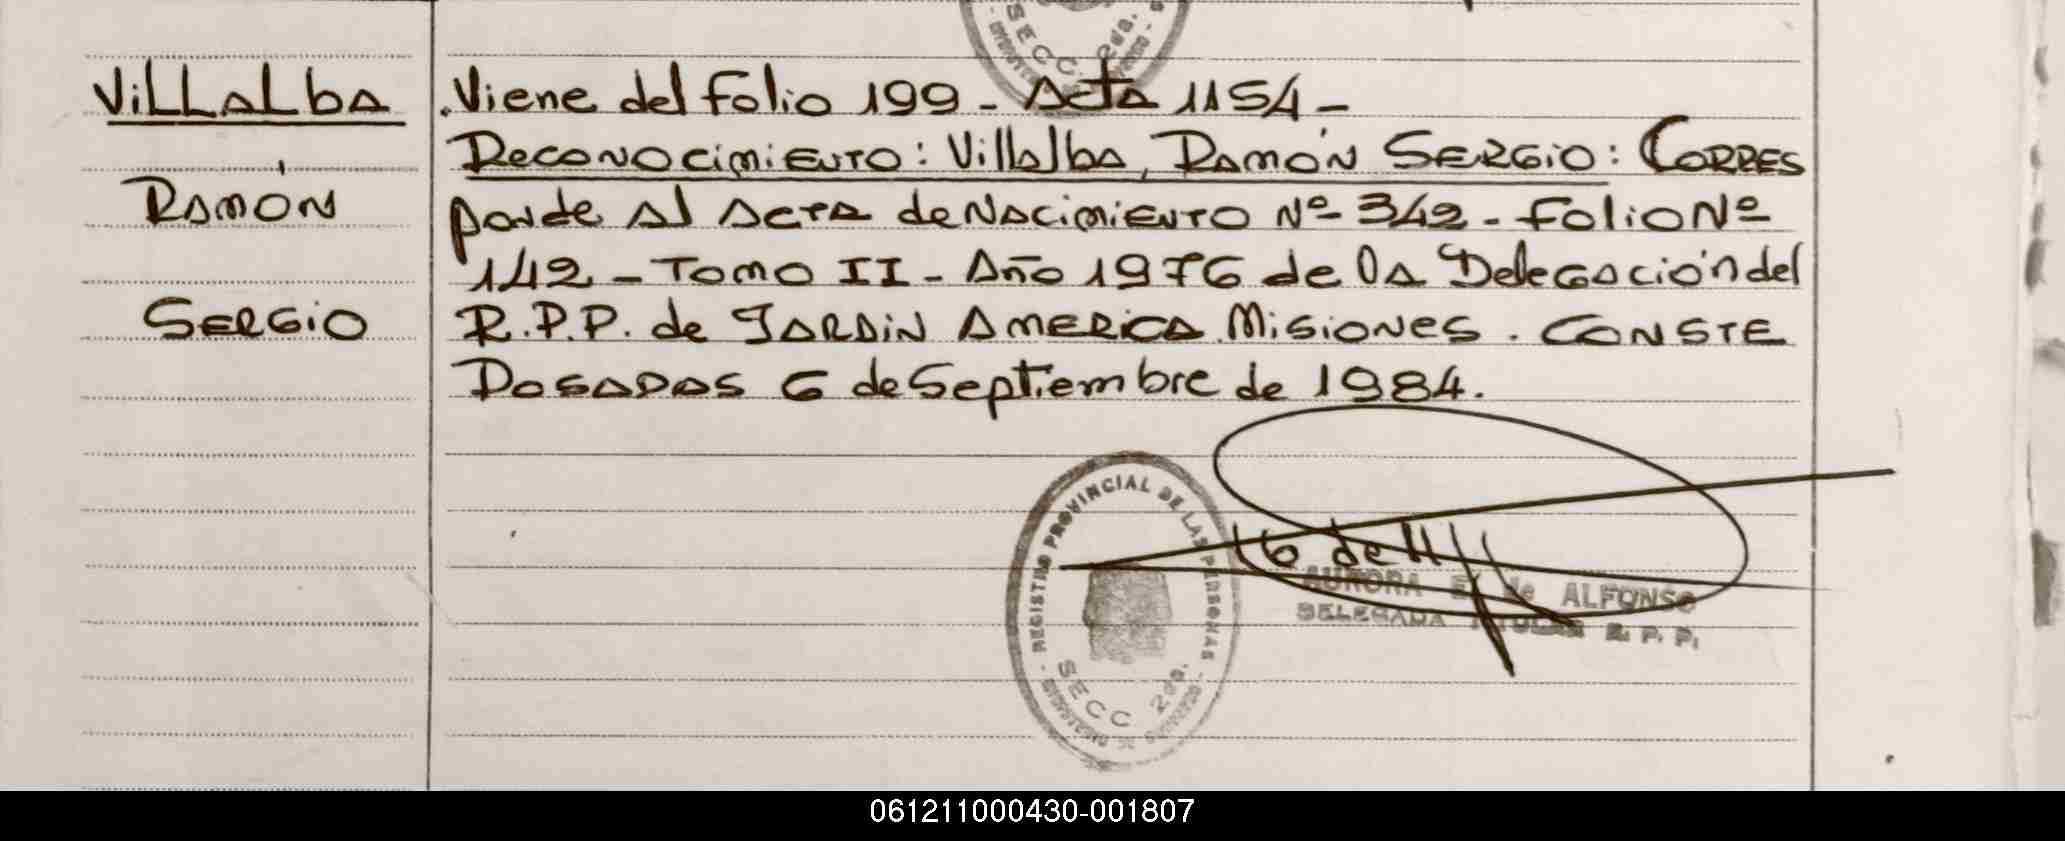 SECC 2da.
Villalba
Ramón
Sergio
Viene del folio 199 - Acta 1154 -
Reconocimiento: Villalba, Ramón Sergio: Corres
ponde al Acta de Nacimiento Nº 342 - Folio Nº
142 - Tomo II - Año 1976 de la Delegación del
R.P.P. de Jardin America Misiones. Conste
Posadas 6 de Septiembre de 1984.
REGISTRO PROVINCIAL DE LAS PERSONAS
SECC 2da.
AURORA E. de ALFONSO
DELEGADA TITULAR R. P. P.
061211000430-001807